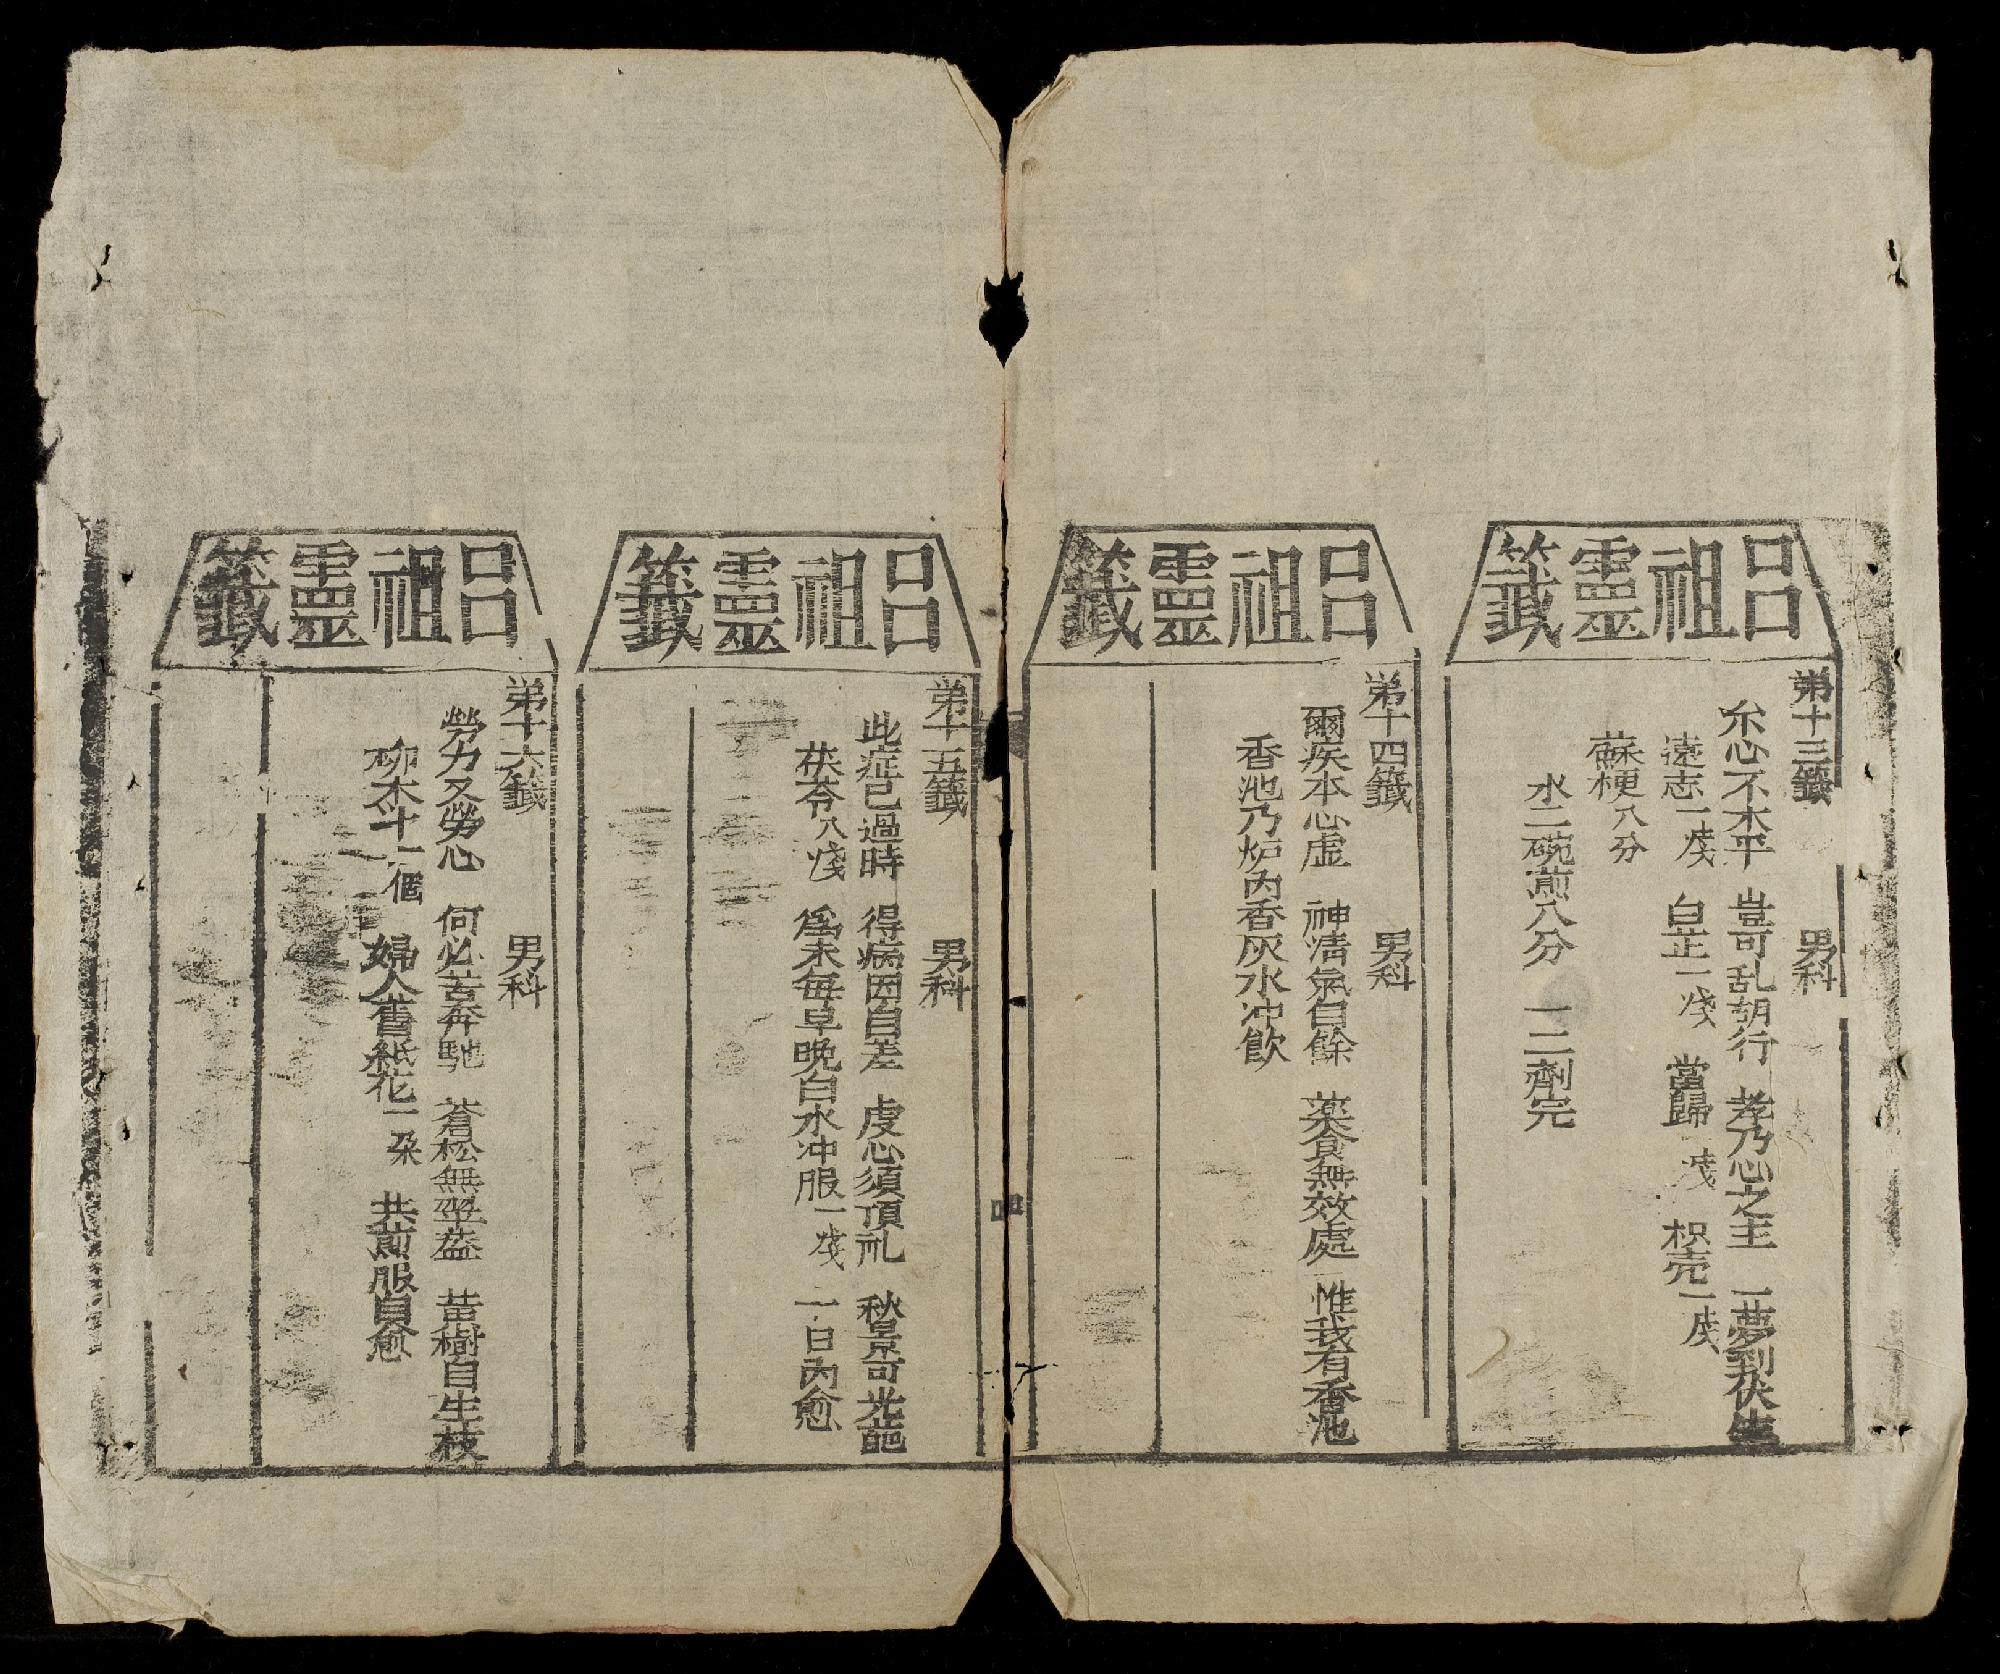 呂祖靈籤
弟十三籤 男科
尔心不太平 豈可乱胡行 孝乃心之主 一夢到伏生
遠志一戔 白芷一戔 當歸一戔 枳壳一戔
蘇梗八分
水二碗煎八分 一二劑完
呂祖靈籤
弟十四籤 男科
爾疾本心虛 神清氣自餘 薬食無效處 惟我有香池
香池乃炉內香灰水冲飲
呂祖靈籤
弟十五籤 男科
此症已過時 得病因自差 虔心須頂礼 秋景可光葩
茯苓八戔 為末每早晚白水冲服一戔 一日內愈
呂祖靈籤
弟十六籤 男科
勞力又勞心 何必苦奔馳 蒼松無翠盖 黃樹自生枝
柳木十一個 婦人舊紙花一朶 共煎服自愈
四